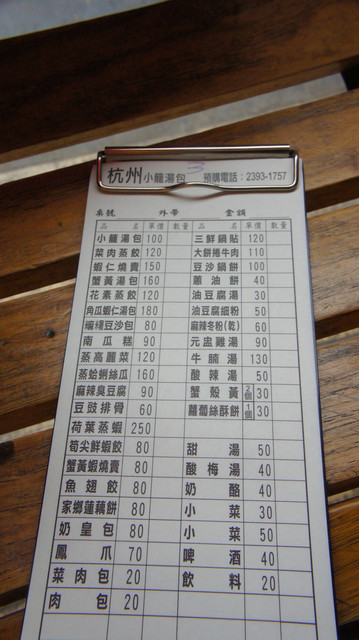 杭州小籠湯包 3 預購電話：2393-1757
桌號 外帶 金額
品名 單價 數量 品名 單價 數量
小籠湯包 100 三鮮鍋貼 120
菜肉蒸餃 120 大餅捲牛肉 110
蝦仁燒賣 150 豆沙鍋餅 100
蟹黃湯包 160 蔥油餅 40
花素蒸餃 120 油豆腐湯 30
角瓜蝦仁湯包 180 油豆腐細粉 50
豆沙包 80 麻辣冬粉(乾) 60
南瓜糕 90 元盅雞湯 90
蒸高麗菜 120 牛腩湯 130
蒸蛤蜊絲瓜 160 酸辣湯 50
麻辣臭豆腐 90 蟹殼黃 2個 30
豆豉排骨 60 蘿蔔絲酥餅 1個 30
荷葉蒸蝦 250
筍尖鮮蝦餃 80 甜湯 50
蟹黃蝦燒賣 80 酸梅湯 40
魚翅餃 80 奶酪 40
家鄉蓮藕餅 80 小菜 30
奶皇包 80 小菜 50
鳳爪 70 啤酒 40
菜肉包 20 飲料 20
肉包 20